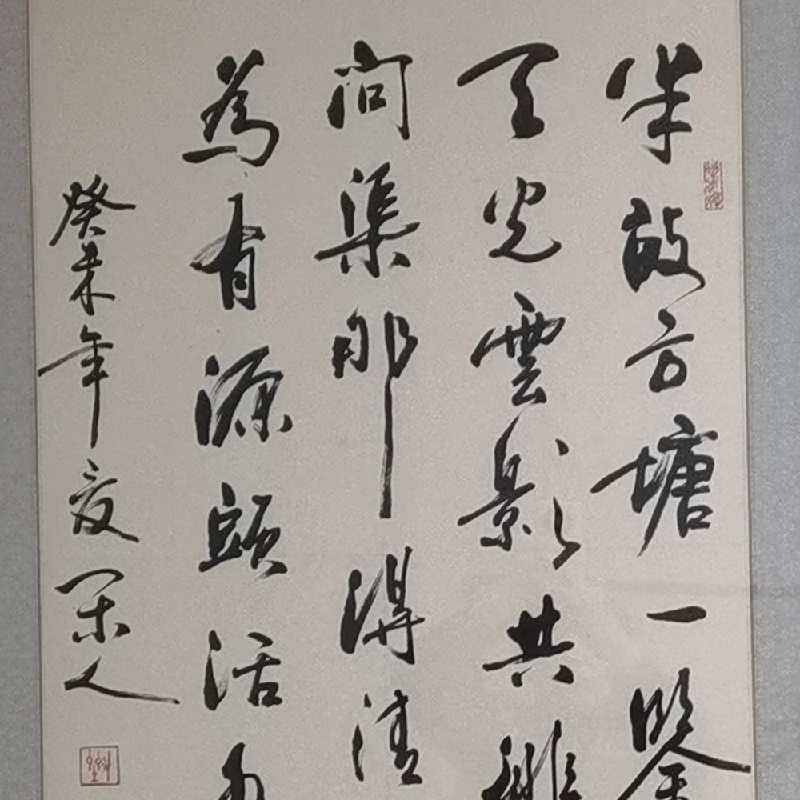 半畝方塘一鑒
天光雲影共徘
問渠那得清
為有源頭活水
癸未年夏 閑人